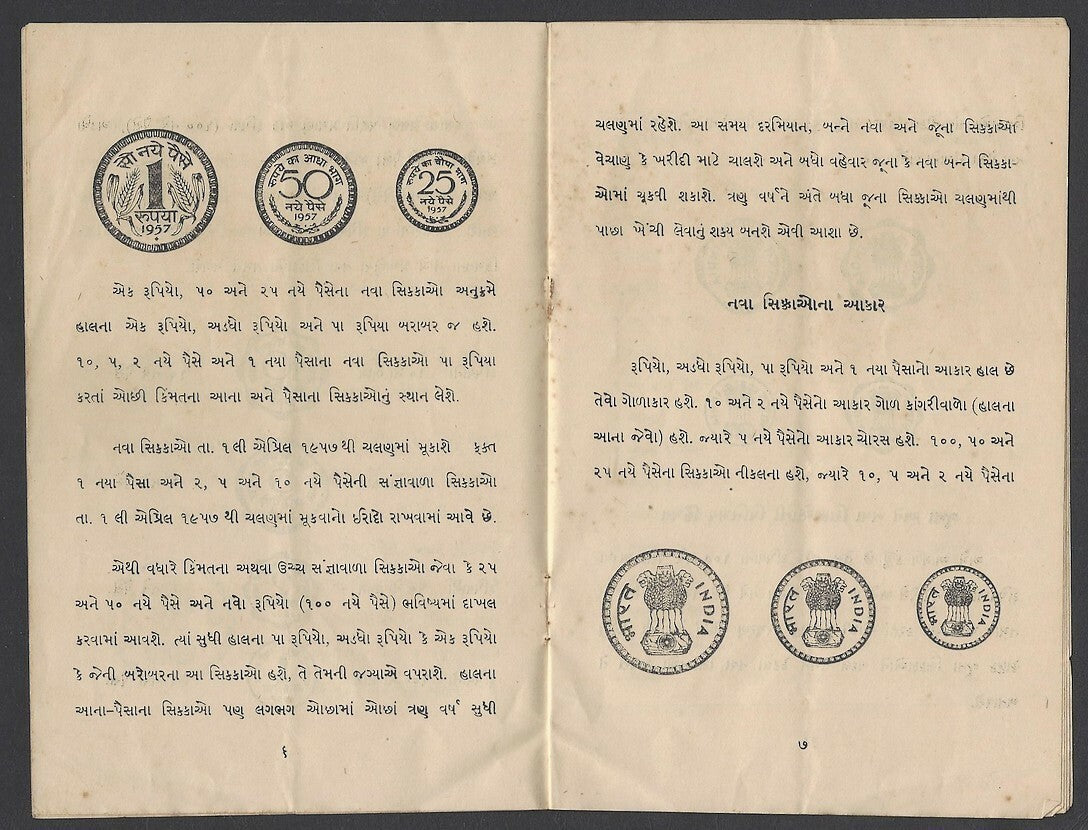 सौ नये पैसे
1
रुपया
1957
रुपये का आधा भाग
50
नये पैसे
1957
रुपये का चौथा भाग
25
नये पैसे
1957
એક રૂપિયો, ૫૦ અને ૨૫ નયે પૈસેના નવા સિક્કાઓ અનુક્રમે
હાલના એક રૂપિયો, અડધો રૂપિયો અને પા રૂપિયા બરાબર જ હશે.
૧૦, ૫, ૨ નયે પૈસે અને ૧ નયા પૈસાના નવા સિક્કાઓ પા રૂપિયા
કરતાં ઓછી કિંમતના આના અને પૈસાના સિક્કાઓનું સ્થાન લેશે.
નવા સિક્કાઓ તા. ૧ લી એપ્રિલ ૧૯૫૭ થી ચલણમાં મૂકાશે ફક્ત
૧ નયા પૈસા અને ૨, ૫ અને ૧૦ નયે પૈસેની સંજ્ઞાવાળા સિક્કાઓ
તા. ૧ લી એપ્રિલ ૧૯૫૭ થી ચલણમાં મૂકવાનો ઇરાદો રાખવામાં આવે છે.
એથી વધારે કિંમતના અથવા ઉચ્ચ સંજ્ઞાવાળા સિક્કાઓ જેવા કે ૨૫
અને ૫૦ નયે પૈસે અને નવો રૂપિયો (૧૦૦ નયે પૈસે) ભવિષ્યમાં દાખલ
કરવામાં આવશે. ત્યાં સુધી હાલના પા રૂપિયો, અડધો રૂપિયો કે એક રૂપિયો
કે જેની બરોબરના આ સિક્કાઓ હશે, તે તેમની જગ્યાએ વપરાશે. હાલના
આના–પૈસાના સિક્કાઓ પણ લગભગ ઓછામાં ઓછાં ત્રણ વર્ષ સુધી
૬
ચલણમાં રહેશે. આ સમય દરમિયાન, બન્ને નવા અને જૂના સિક્કાઓ
વેચાણ કે ખરીદી માટે ચાલશે અને બધો વહેવાર જૂના કે નવા બન્ને સિક્કા-
ઓમાં ચૂકવી શકાશે. ત્રણ વર્ષને અંતે બધા જૂના સિક્કાઓ ચલણમાંથી
પાછા ખેંચી લેવાનું શક્ય બનશે એવી આશા છે.
નવા સિક્કાઓના આકાર
રૂપિયો, અડધો રૂપિયો, પા રૂપિયો અને ૧ નયા પૈસાનો આકાર હાલ છે
તેવો ગોળાકાર હશે. ૧૦ અને ૨ નયે પૈસેનો આકાર ગોળ કાંગરીવાળો (હાલના
આના જેવો) હશે. જ્યારે ૫ નયે પૈસેનો આકાર ચોરસ હશે. ૧૦૦, ૫૦ અને
૨૫ નયે પૈસેના સિક્કાઓ નીકલના હશે, જ્યારે ૧૦, ૫ અને ૨ નયે પૈસેના
भारत INDIA
भारत INDIA
भारत INDIA
૭